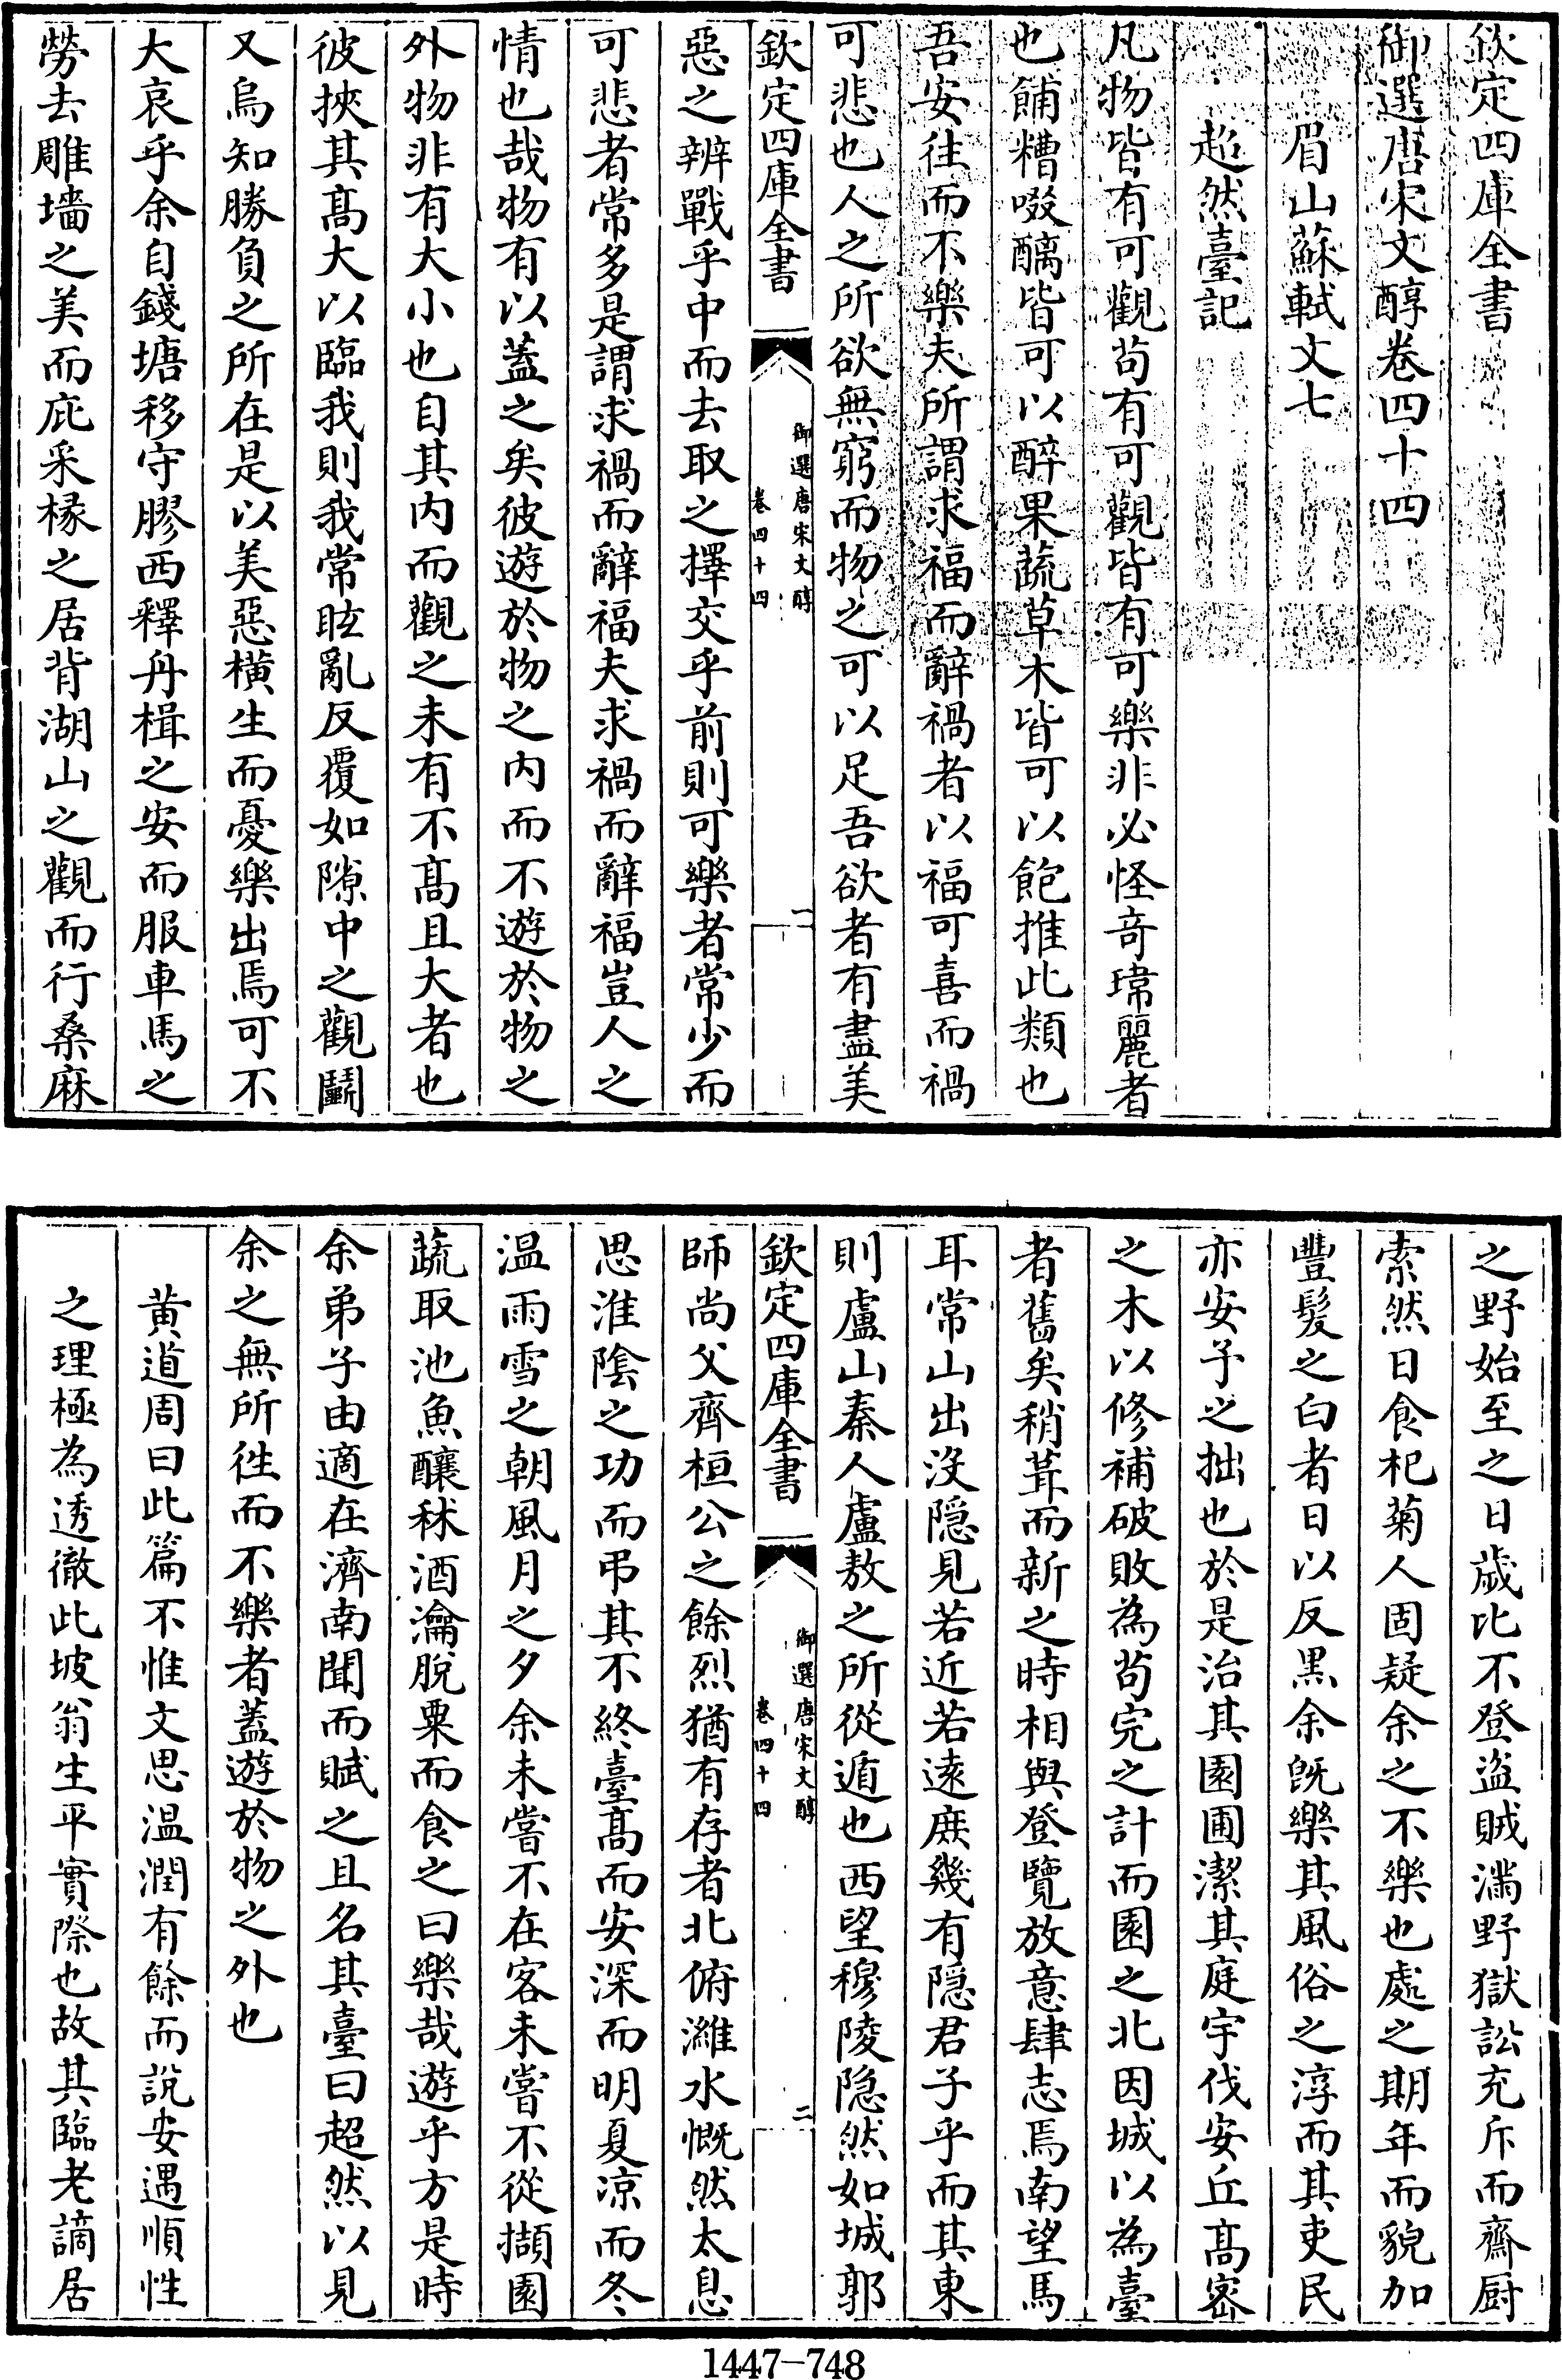 欽定四庫全書
御選唐宋文醇卷四十四
眉山蘇軾文七
超然臺記
凡物皆有可觀茍有可觀皆有可樂非必怪竒瑋麗者
也餔糟啜醨皆可以醉果蔬草木皆可以飽推此類也
吾安往而不樂夫所謂求福而辭禍者以福可喜而禍
可悲也人之所欲無窮而物之可以足吾欲者有盡美
欽定四庫全書
御選唐宋文醇
卷四十四
一
惡之辨戰乎中而去取之擇交乎前則可樂者常少而
可悲者常多是謂求禍而辭福夫求禍而辭福豈人之
情也哉物有以蓋之矣彼遊於物之内而不遊於物之
外物非有大小也自其内而觀之未有不髙且大者也
彼挾其髙大以臨我則我常眩亂反覆如隙中之觀鬭
又烏知勝負之所在是以美惡橫生而憂樂出焉可不
大哀乎余自錢塘移守膠西釋丹楫之安而服車馬之
勞去雕墻之美而庇采椽之居背湖山之觀而行桑麻
之野始至之日歲比不登盜賊滿野獄訟充斥而齋厨
索然日食杞菊人固疑余之不樂也處之期年而貌加
豐髮之白者日以反黒余旣樂其風俗之淳而其吏民
亦安予之拙也於是治其園圃潔其庭宇伐安丘髙密
之木以修補破敗為茍完之計而園之北因城以為臺
者舊矣稍葺而新之時相與登覽放意肆志焉南望馬
耳常山出沒隠見若近若逺庶幾有隠君子乎而其東
則盧山秦人盧敖之所從遁也西望穆陵隠然如城郭
欽定四庫全書
御選唐宋文醇
卷四十四
二
師尚父齊桓公之餘烈猶有存者北俯濰水慨然太息
思淮隂之功而弔其不終臺髙而安深而明夏凉而冬
温雨雪之朝風月之夕余未嘗不在客未嘗不從擷園
蔬取池魚釀秫酒瀹脫粟而食之曰樂哉遊乎方是時
余弟子由適在濟南聞而賦之且名其臺曰超然以見
余之無所往而不樂者蓋遊於物之外也
黄道周曰此篇不惟文思温潤有餘而說安遇順性
之理極為透徹此坡翁生平實際也故其臨老謫居
1447-748